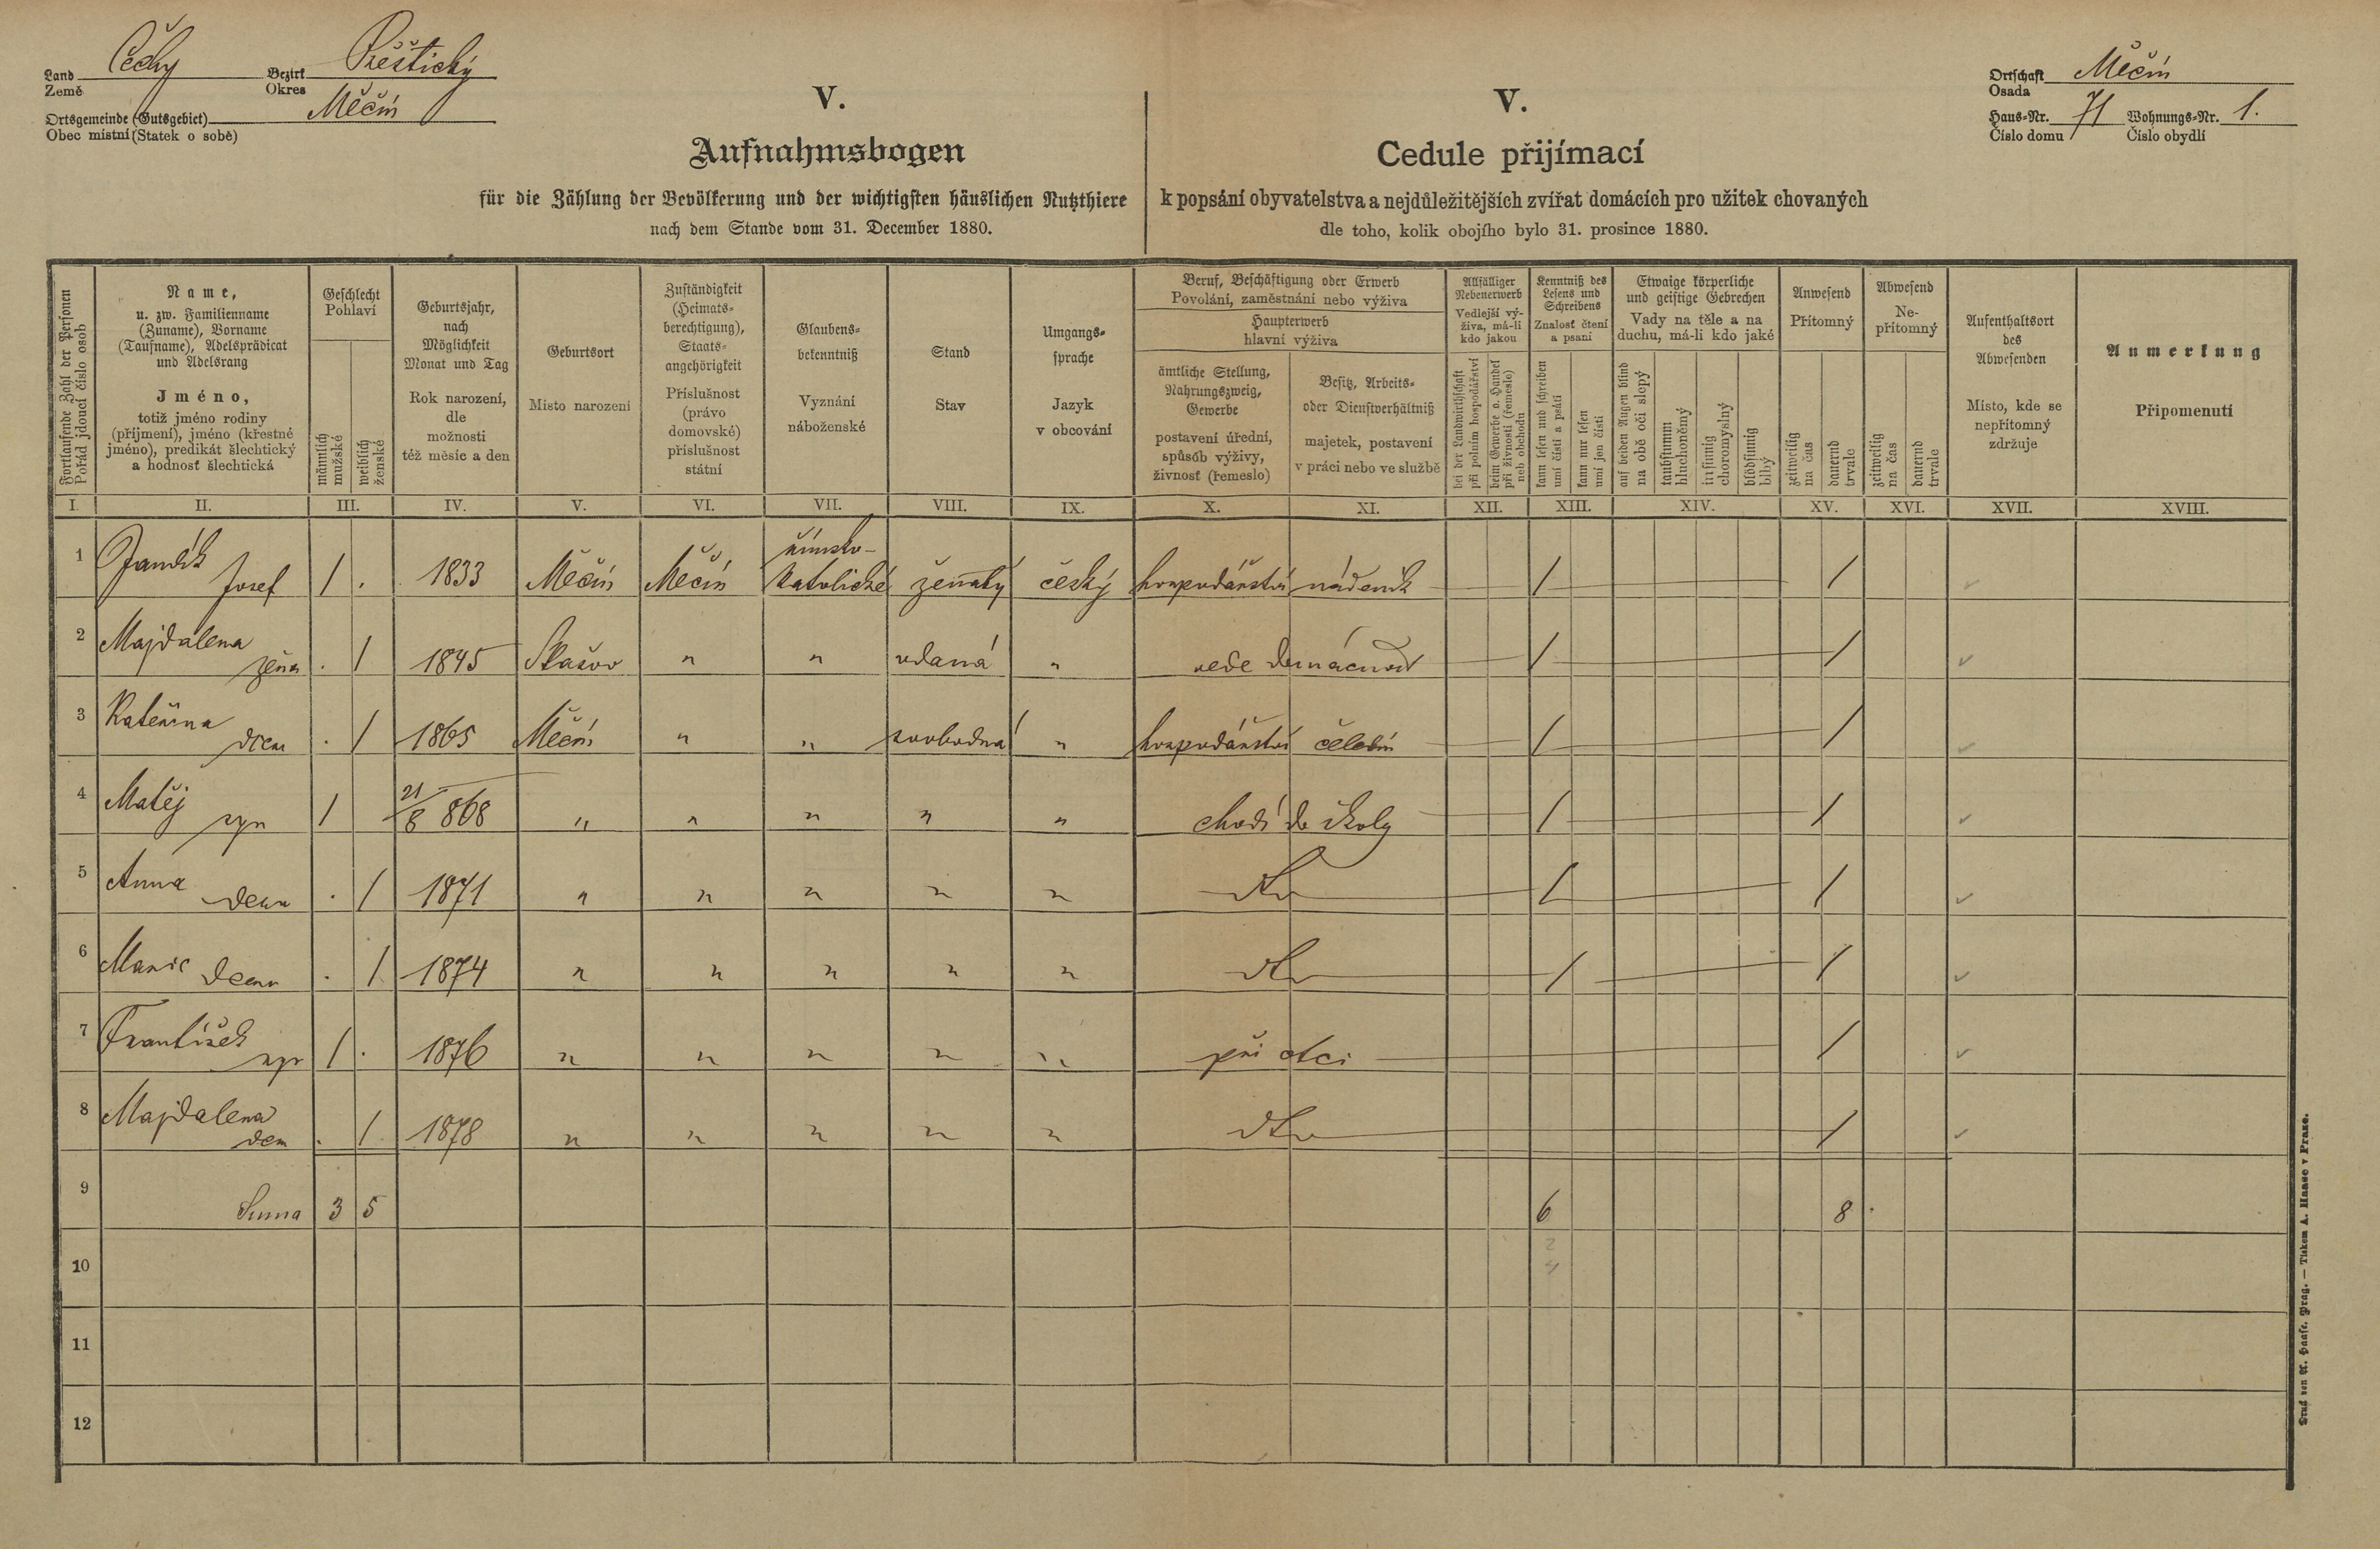 Land Čechy Bezirk Přeštický
Země Okres
Ortsgemeinde (Gutsgebiet) Měčín
Obec místní (Statek o sobě)
Ortschaft Měčín
Osada
Haus-Nr. 71 Wohnungs-Nr. 1.
Číslo domu Číslo obydlí
V.
Aufnahmsbogen
für die Zählung der Bevölkerung und der wichtigsten häuslichen Nutzthiere
nach dem Stande vom 31. December 1880.
V.
Cedule přijímací
k popsání obyvatelstva a nejdůležitějších zvířat domácích pro užitek chovaných
dle toho, kolik obojího bylo 31. prosince 1880.
Fortlaufende Zahl der Personen
Pořád jdoucí číslo osob
Name,
u. zw. Familienname
(Zuname), Vorname
(Taufname), Adelsprädicat
und Adelsrang
Jméno,
totiž jméno rodiny
(příjmení), jméno (křestné
jméno), predikát šlechtický
a hodnosť šlechtická
Geschlecht
Pohlaví
männlich
mužské
weiblich
ženské
Geburtsjahr,
nach
Möglichkeit
Monat und Tag
Rok narození,
dle
možnosti
též měsíc a den
Geburtsort
Místo narození
Zuständigkeit
(Heimats-
berechtigung),
Staats-
angehörigkeit
Příslušnost
(právo
domovské)
příslušnost
státní
Glaubens-
bekenntniß
Vyznání
náboženské
Stand
Stav
Umgangs-
sprache
Jazyk
v obcování
Beruf, Beschäftigung oder Erwerb
Povolání, zaměstnání nebo výživa
Haupterwerb
hlavní výživa
ämtliche Stellung,
Nahrungszweig,
Gewerbe
postavení úřední,
spůsob výživy,
živnosť (řemeslo)
Besitz, Arbeits-
oder Dienstverhältniß
majetek, postavení
v práci nebo ve službě
Allfälliger
Nebenerwerb
Vedlejší vý-
živa, má-li
kdo jakou
bei der Landwirthschaft
při polním hospodářství
beim Gewerbe o. Handel
při živnosti (řemeslo)
neb obchodu
Kenntniß des
Lesens und
Schreibens
Znalosť čtení
a psaní
kann lesen und schreiben
umí čísti a psáti
kann nur lesen
umí jen čísti
Etwaige körperliche
und geistige Gebrechen
Vady na těle a na
duchu, má-li kdo jaké
auf beiden Augen blind
na obě oči slepý
taubstumm
hluchoněmý
irrsinnig
choromyslný
blödsinnig
blbý
Anwesend
Přítomný
zeitweilig
na čas
dauernd
trvale
Abwesend
Ne-
přítomný
zeitweilig
na čas
dauernd
trvale
Aufenthaltsort
des
Abwesenden
Místo, kde se
nepřítomný
zdržuje
Anmerkung
Připomenutí
I. II. III. IV. V. VI. VII. VIII. IX. X. XI. XII. XIII. XIV. XV. XVI. XVII. XVIII.
1 Jandík Josef / . 1833 Měčín Měčín římsko-katolické ženatý český hospodářství nádeník / /
2 Majdalena žena . / 1845 Skašov " " vdaná " vede domácnost / /
3 Kateřina dcera . / 1865 Měčín " " svobodná " hospodářství čeledín / /
4 Matěj syn / 21/8 868 " " " " " chodí do školy / /
5 Anna dcera . / 1871 " " " " " dto / /
6 Marie dcera . / 1874 " " " " " dto / /
7 František syn / . 1876 " " " " " při otci /
8 Majdalena dcera . / 1878 " " " " " dto /
9 Suma 3 5 6 8
2
10
4
11
12
Druck von A. Haase, Prag. — Tiskem A. Haase v Praze.